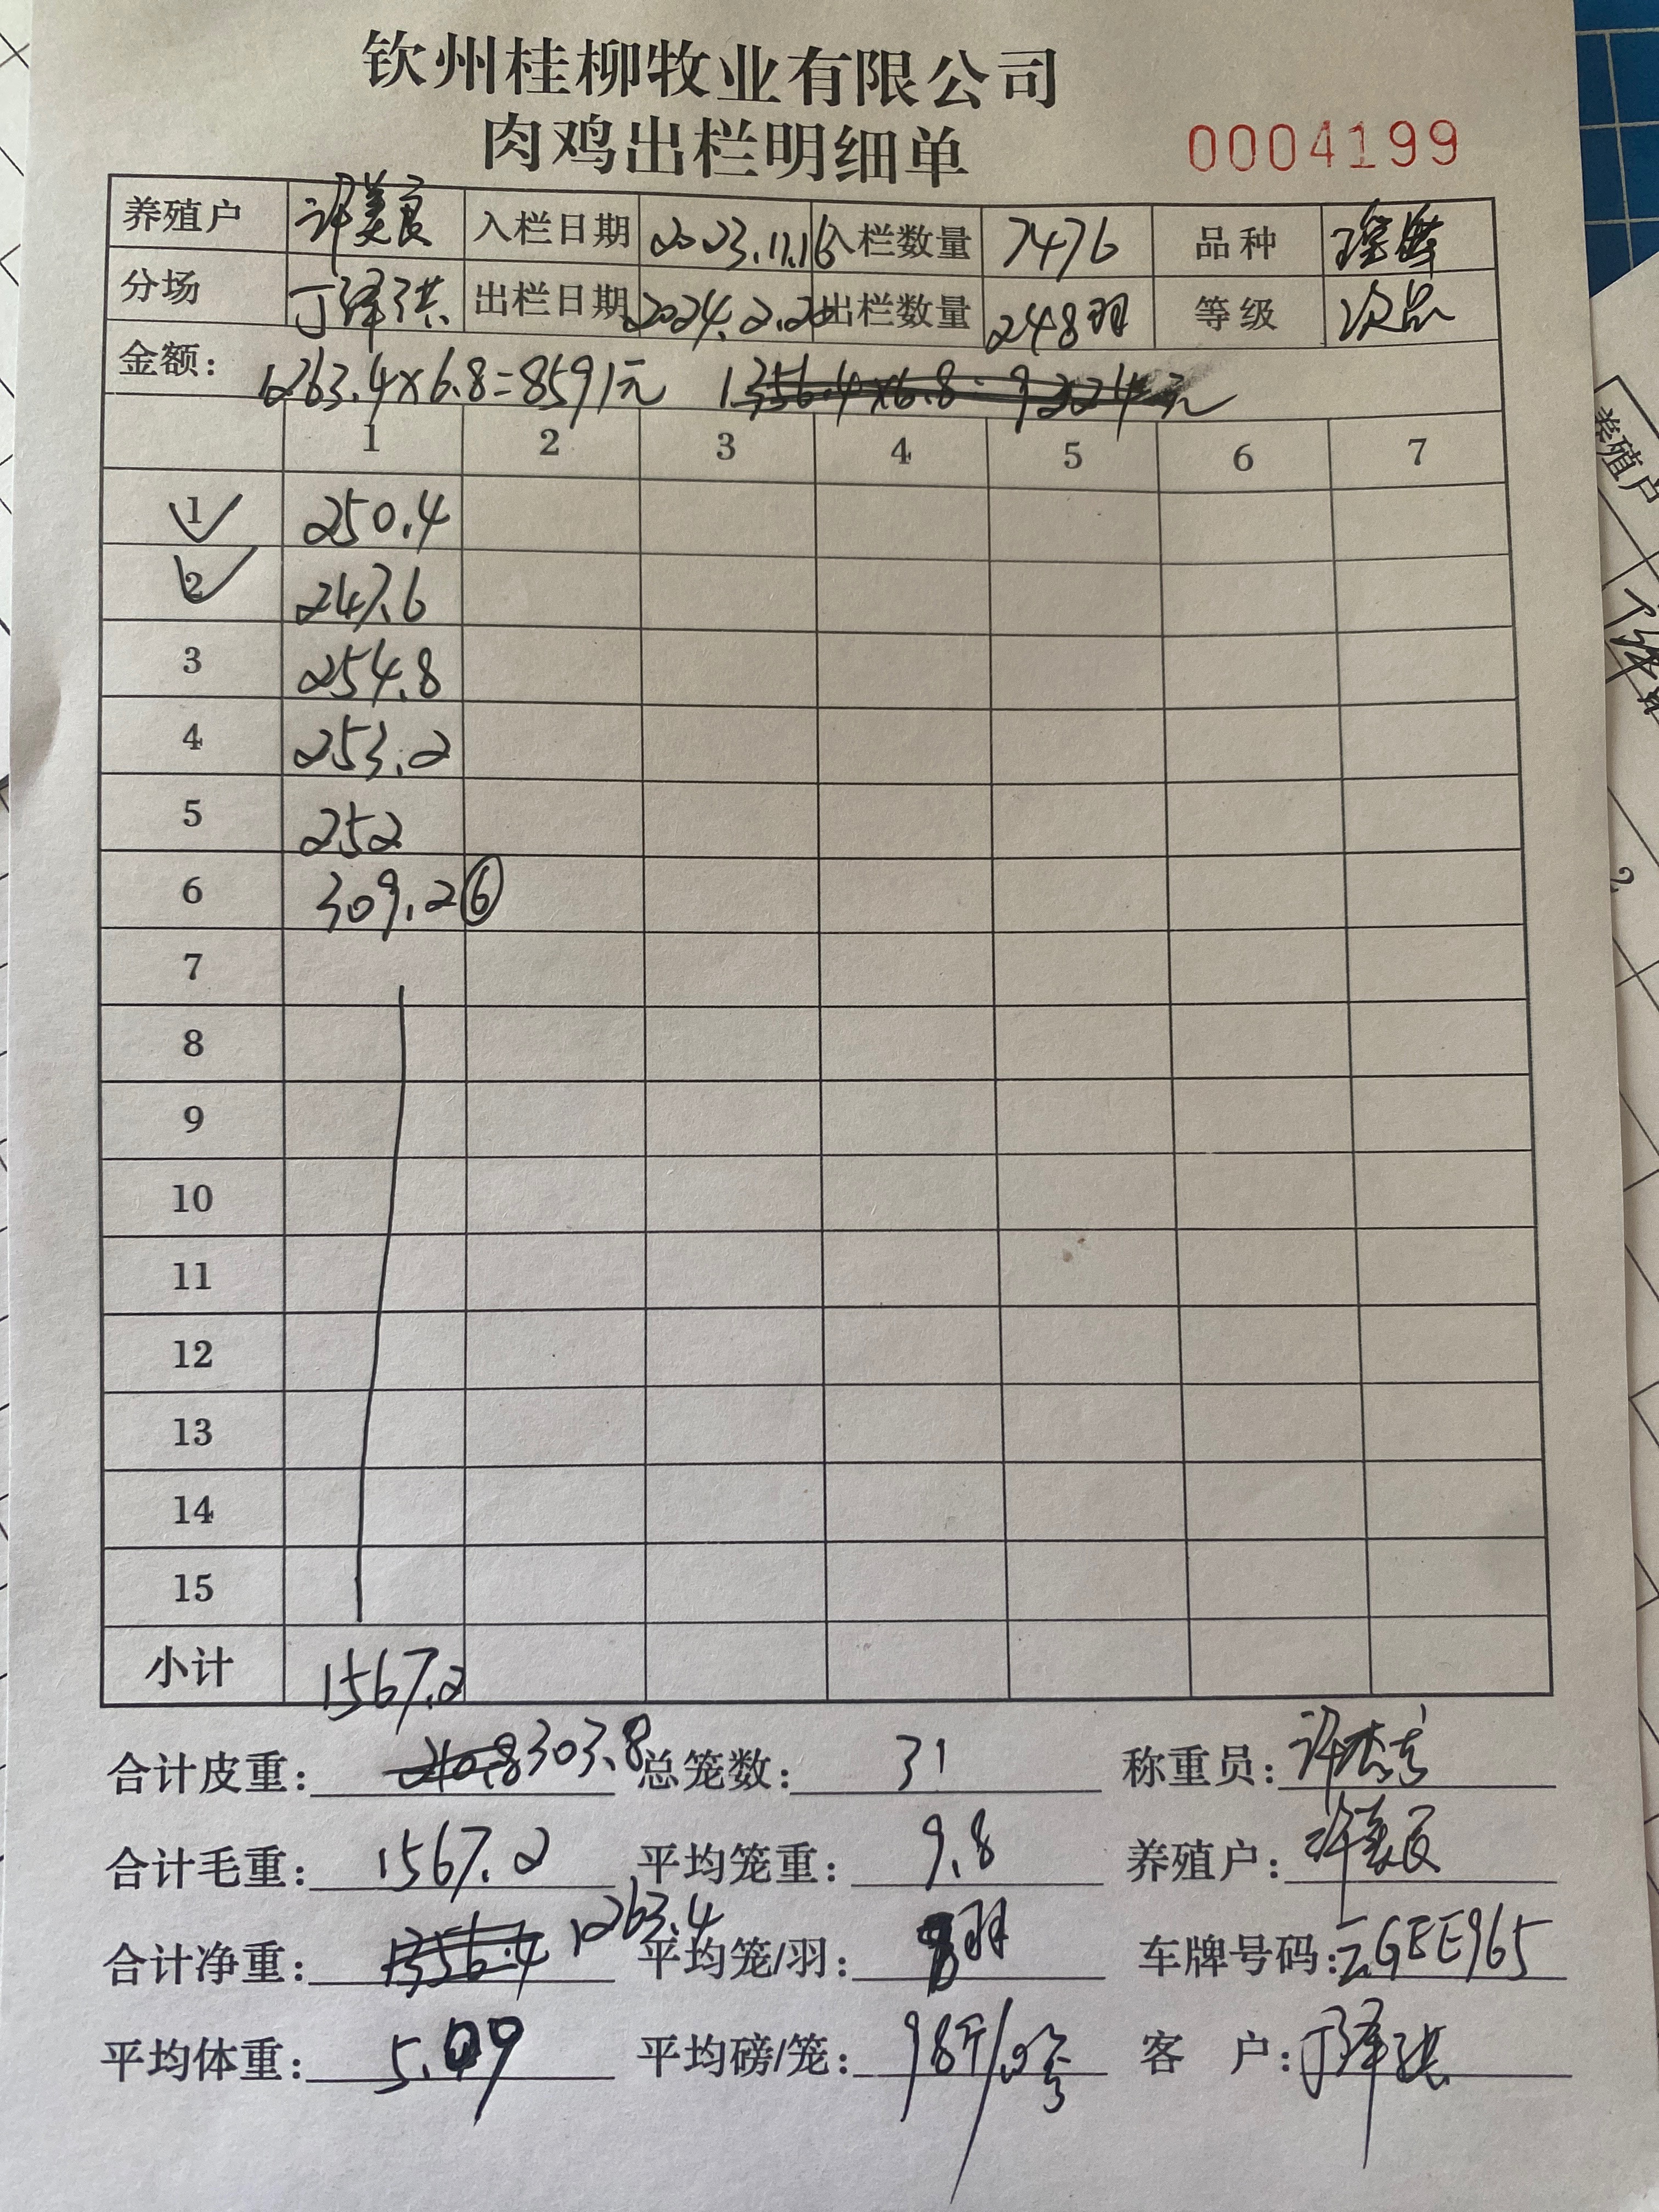 钦州桂柳牧业有限公司
肉鸡出栏明细单 0004199
养殖户 许美良 入栏日期 2023.11.16 入栏数量 7476 品种 瑶鸡
分场 丁泽洪 出栏日期 2024.2.20 出栏数量 248羽 等级 次品
金额: 1263.4×6.8=8591元 1356.4×6.8=9224元
1 2 3 4 5 6 7
1 250.4
2 247.6
3 254.8
4 253.2
5 252
6 309.2 ⑥
7
8
9
10
11
12
13
14
15
小计 1567.2
合计皮重: 210.8 303.8 总笼数: 31 称重员: 许杰
合计毛重: 1567.2 平均笼重: 9.8 养殖户: 许美良
合计净重: 1356.4 1263.4 平均笼/羽: 8羽 车牌号码: 云GEE965
平均体重: 5.09 平均磅/笼: 98斤/ 客 户: 丁泽洪
养殖户
2